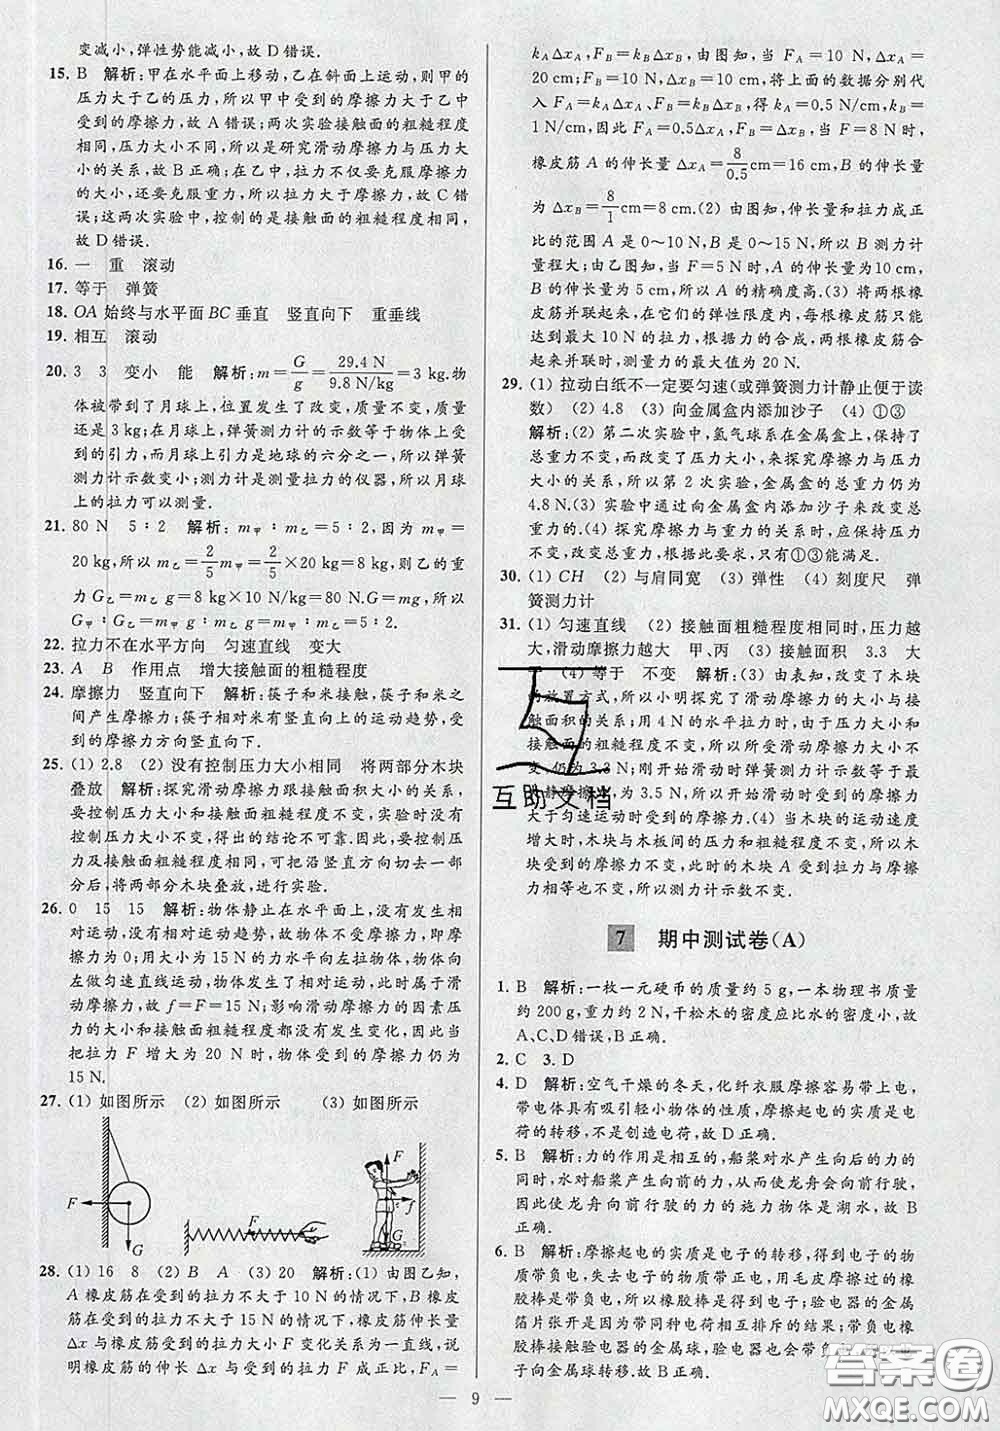 变减小,弹性势能减小,故 D 错误.
15. B 解析:甲在水平面上移动,乙在斜面上运动,则甲的
压力大于乙的压力,所以甲中受到的摩擦力大于乙中
受到的摩擦力,故 A 错误;两次实验接触面的粗糙程度
相同,压力大小不同,所以是研究滑动摩擦力与压力大
小的关系,故 B 正确;在乙中,拉力不仅要克服摩擦力
的大小,还要克服重力,所以拉力大于摩擦力,故 C 错
误;这两次实验中,控制的是接触面的粗糙程度相同,
故 D 错误.
16. 一 重 滚动
17. 等于 弹簧
18. OA 始终与水平面 BC 垂直 竖直向下 重垂线
19. 相互 滚动
20. 3 3 变小 能 解析:m=G/g=29.4 N/9.8 N/kg=3 kg.物
体被带到了月球上,位置发生了改变,质量不变,质量
还是 3 kg;在月球上,弹簧测力计的示数等于物体上受
到的引力,而月球上引力是地球的六分之一,所以弹簧
测力计示数变小;测力计是测量力的仪器,所以月球上
的拉力可以测量.
21. 80 N 5∶2 解析:m甲∶m乙=5∶2,因为 m甲=
20 kg,所以 m乙=2/5 m甲=2/5×20 kg=8 kg,则乙的重
力 G乙=m乙 g=8 kg×10 N/kg=80 N.G=mg,所以
G甲∶G乙=m甲 g∶m乙 g=m甲∶m乙=5∶2.
22. 拉力不在水平方向 匀速直线 变大
23. A B 作用点 增大接触面的粗糙程度
24. 摩擦力 竖直向下 解析:筷子和米接触,筷子和米之
间产生摩擦力;筷子相对米有竖直向上的运动趋势,受
到的摩擦力方向竖直向下.
25. (1) 2.8 (2) 没有控制压力大小相同 将两部分木块
叠放 解析:探究滑动摩擦力跟接触面积大小的关系,
要控制压力大小和接触面粗糙程度不变,实验时没有
控制压力大小不变,得出的结论不可靠.因此,要控制压
力及接触面粗糙程度相同,可把沿竖直方向切去一部
分后,将两部分木块叠放,进行实验.
26. 0 15 15 解析:物体静止在水平面上,没有发生相
对运动,也没有相对运动趋势,故不受摩擦力,即摩擦
力是 0;用大小为 15 N 的水平力向右拉物体,物体向右
做匀速直线运动,物体发生了相对运动,故属于滑动
摩擦力,故 f=F=15 N;影响滑动摩擦力的因素压
力的大小和接触面粗糙程度都没有发生变化,因此当
把拉力 F 增大为 20 N 时,物体受到的摩擦力仍为
15 N.
27. (1) 如图所示 (2) 如图所示 (3) 如图所示
F G F G F f
28. (1) 16 8 (2) B A (3) 20 解析:(1) 由图乙知,
A 橡皮筋受到的拉力不大于 10 N 的情况下,B 橡皮筋
受到的拉力不大于 15 N 的情况下,作出的橡皮筋伸长
量 Δx 与橡皮筋受到的拉力大小 F 变化关系为一直线,说
明橡皮筋的伸长 Δx 与受到的拉力 F 成正比,FA=
kAΔxA,FB=kBΔxB,由图知,当 FA=10 N,ΔxA=
20 cm;FB=10 N,ΔxB=10 cm,将上面的数据分别代
入 FA=kAΔxA、FB=kBΔxB,得 kA=0.5 N/cm,kB=
1 N/cm,因此 FA=0.5ΔxA,FB=ΔxB,当 F=8 N 时,
橡皮筋 A 的伸长量 ΔxA=8/0.5 cm=16 cm,B 的伸长量
为 ΔxB=8/1 cm=8 cm.(2) 由图知,伸长量和拉力成正
比的范围 A 是 0~10 N,B 是 0~15 N,所以 B 测力计
量程大;由乙图知,当 F=5 N 时,A 的伸长量为 10 cm,
B 的伸长量为 5 cm,所以 A 的精确度高.(3) 将两根橡
皮筋并联起来,在它们的弹性限度内,每根橡皮筋只能
达到最大 10 N 的拉力,根据力的合成,两根橡皮筋合
起来并联时,测量力的最大值为 20 N.
29. (1) 拉动白纸不一定要匀速(或弹簧测力计静止便于读
数) (2) 4.8 (3) 向金属盒内添加沙子 (4) ①③
解析:(2) 第二次实验中,氢气球系在金属盒上,保持了
总重力不变,而改变了压力大小,来探究摩擦力与压力
大小的关系,所以第 2 次实验,金属盒的总重力还是
4.8 N.(3) 实验中通过向金属盒内添加沙子来改变总
重力的.(4) 探究摩擦力与重力的关系时,应保持压力
不变,改变总重力的大小,根据此要求,只有①③能满足.
30. (1) CH (2) 与肩同宽 (3) 弹性 (4) 刻度尺 弹
簧测力计
31. (1) 匀速直线 (2) 接触面粗糙程度相同时,压力越
大,滑动摩擦力越大 甲、丙 (3) 接触面积 3.3 大
于 (4) 等于 不变 解析:(3) 由表知,改变了木块
的放置方式,所以小明探究了滑动摩擦力的大小与接
触面积的关系;用 4 N 的水平拉力时,由于压力大小和
接触面的粗糙程度不变,所以所受滑动摩擦力大小不
变,仍为 3.3 N;刚开始滑动时弹簧测力计的示数即为最
大静摩擦力,为 3.5 N,所以开始滑动时的摩擦力
大于匀速运动时受到的摩擦力.(4) 当木块的运动速度
增大时,木块与木板间的压力和粗糙程度不变,所以木
块受到的摩擦力不变,此时的木块 A 受到拉力与摩擦
力相等也不变,所以测力计示数不变.
7 期中测试卷(A)
1. B 解析:一枚一元硬币的质量约 5 g,一本物理书质量
约 200 g,重力约 2 N,干松木的密度应比水的密度小,故
A、C、D 错误,B 正确.
2. C 3. D
4. D 解析:空气干燥的冬天,化纤衣服摩擦容易带上电,
带电体具有吸引轻小物体的性质,摩擦起电的实质是电
荷的转移,不是创造电荷,故 D 正确.
5. B 解析:力的作用是相互的,船桨对水产生向后的力的
同时,水对船桨产生向前的力,从而使龙舟向前行驶,
因此使龙舟向前行驶的力的施力物体是湖水,故 B
正确.
6. B 解析:摩擦起电的实质是电子的转移,得到电子的物
质带负电,失去电子的物质带正电,用毛皮摩擦过的橡
胶棒是带负电的,所以橡胶棒得到了电子;验电器的金属
箔片张开是因为带同种电荷相互排斥的结果;带负电
橡胶棒接触验电器的金属球,验电器也带负
子向金属球转移.故 B 正确.
互助文档
答案圈
MXQE.COM
— 9 —